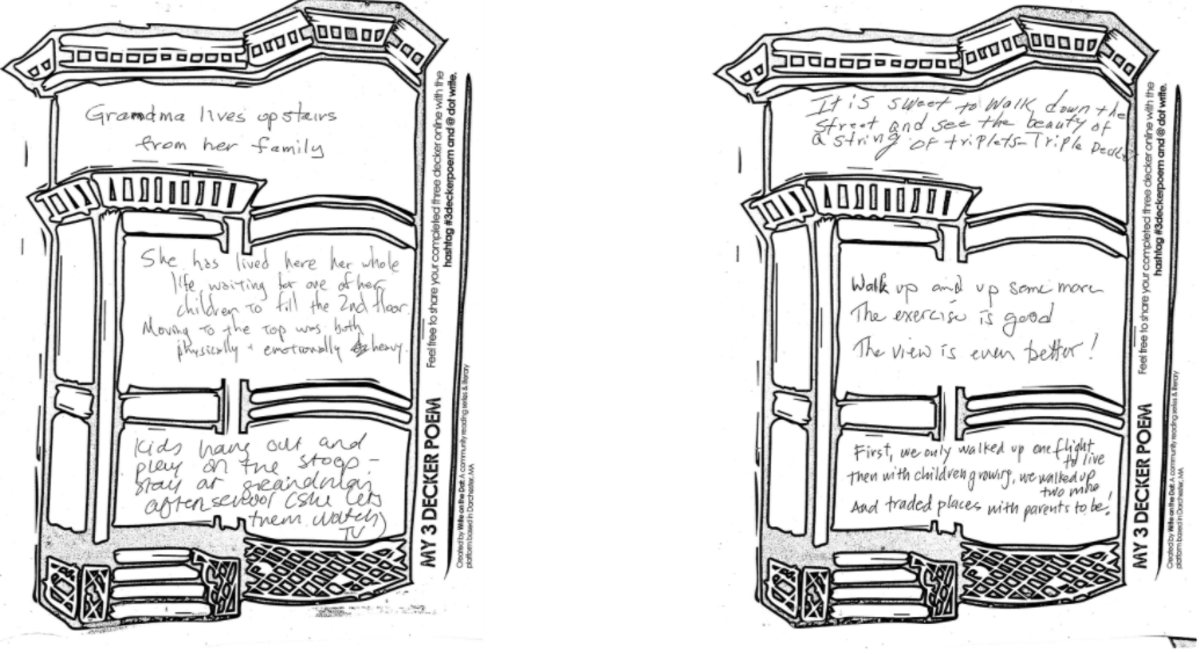 Grandma lives upstairs
from her family
She has lived here her whole
life, waiting for one of her
children to fill the 2nd floor.
Moving to the top was both
physically + emotionally heavy.
Kids hang out and
play on the stoop -
stay at grandmas
afterschool (she lets
them watch
TV
MY 3 DECKER POEM
Feel free to share your completed three decker online with the
hashtag #3deckerpoem and @ dot write.
Created by Write on the Dot: A community reading series & literary
platform based in Dorchester, MA
It is sweet to walk down the
street and see the beauty of
a string of triplets-Triple Decke
Walk up and up some more
The exercise is good
The view is even better!
First, we only walked up one flight
to live
then with children growing, we walked up
two more
And traded places with parents to be!
MY 3 DECKER POEM
Feel free to share your completed three decker online with the
hashtag #3deckerpoem and @ dot write.
Created by Write on the Dot: A community reading series & literary
platform based in Dorchester, MA